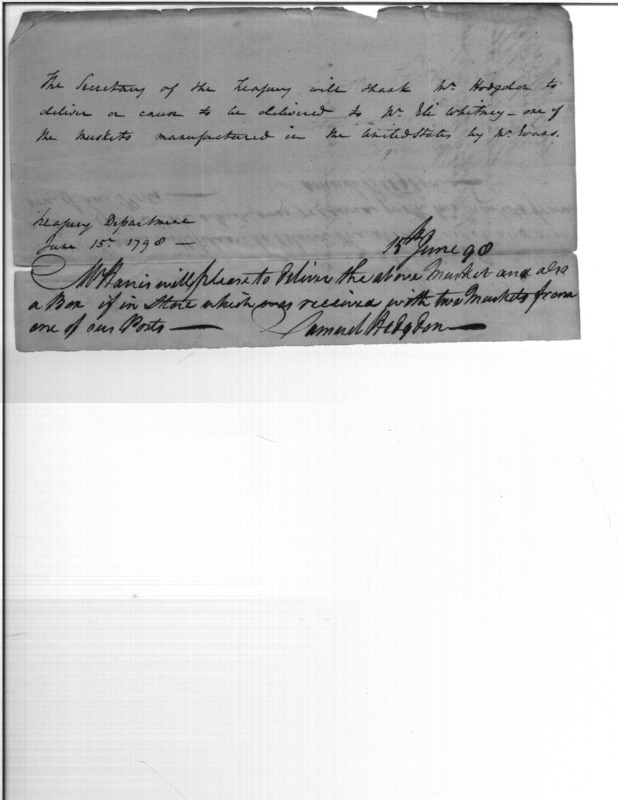 The Secretary of the Treasury will thank Mr. Hodgdon to
deliver or cause to be delivered to Mr. Eli Whitney – one of
the muskets manufactured in the United States by Mr. Evans.
Treasury Department
June 15th 1798 —
15th June 98
Mr Harris will please to deliver the above Musket and also
a Box if in Store which was received with two Muskets from
one of our Posts —
Samuel Hodgdon